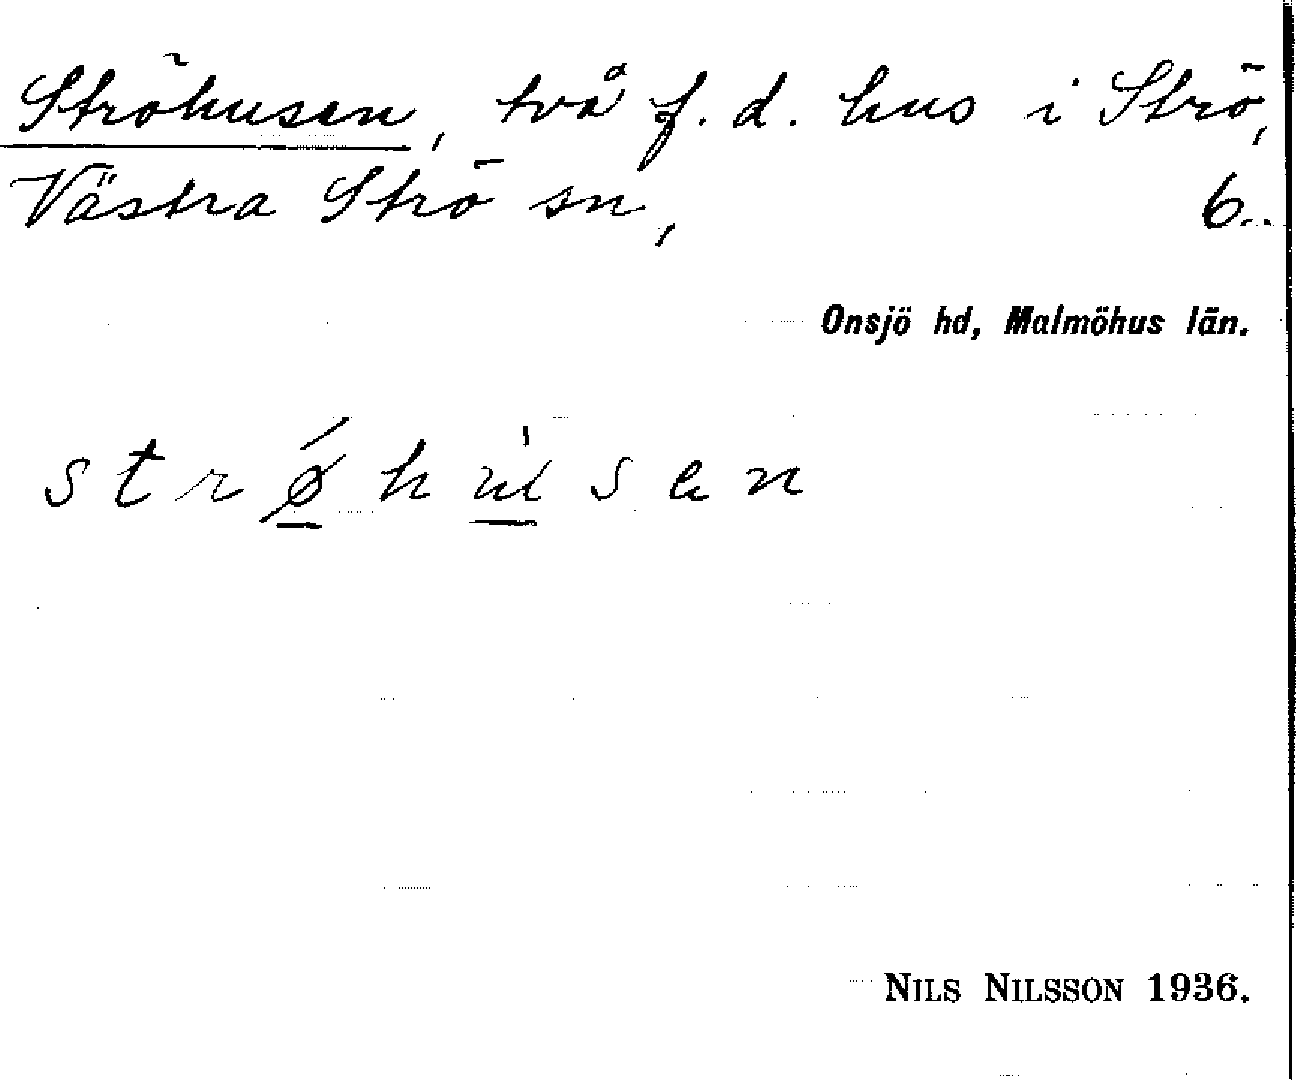 Ströhusen, två f. d. hus i Strö,
Västra Strö sn, 6.
Onsjö hd, Malmöhus län.
strǿ̱hu̱̍sen
NILS NILSSON 1936.